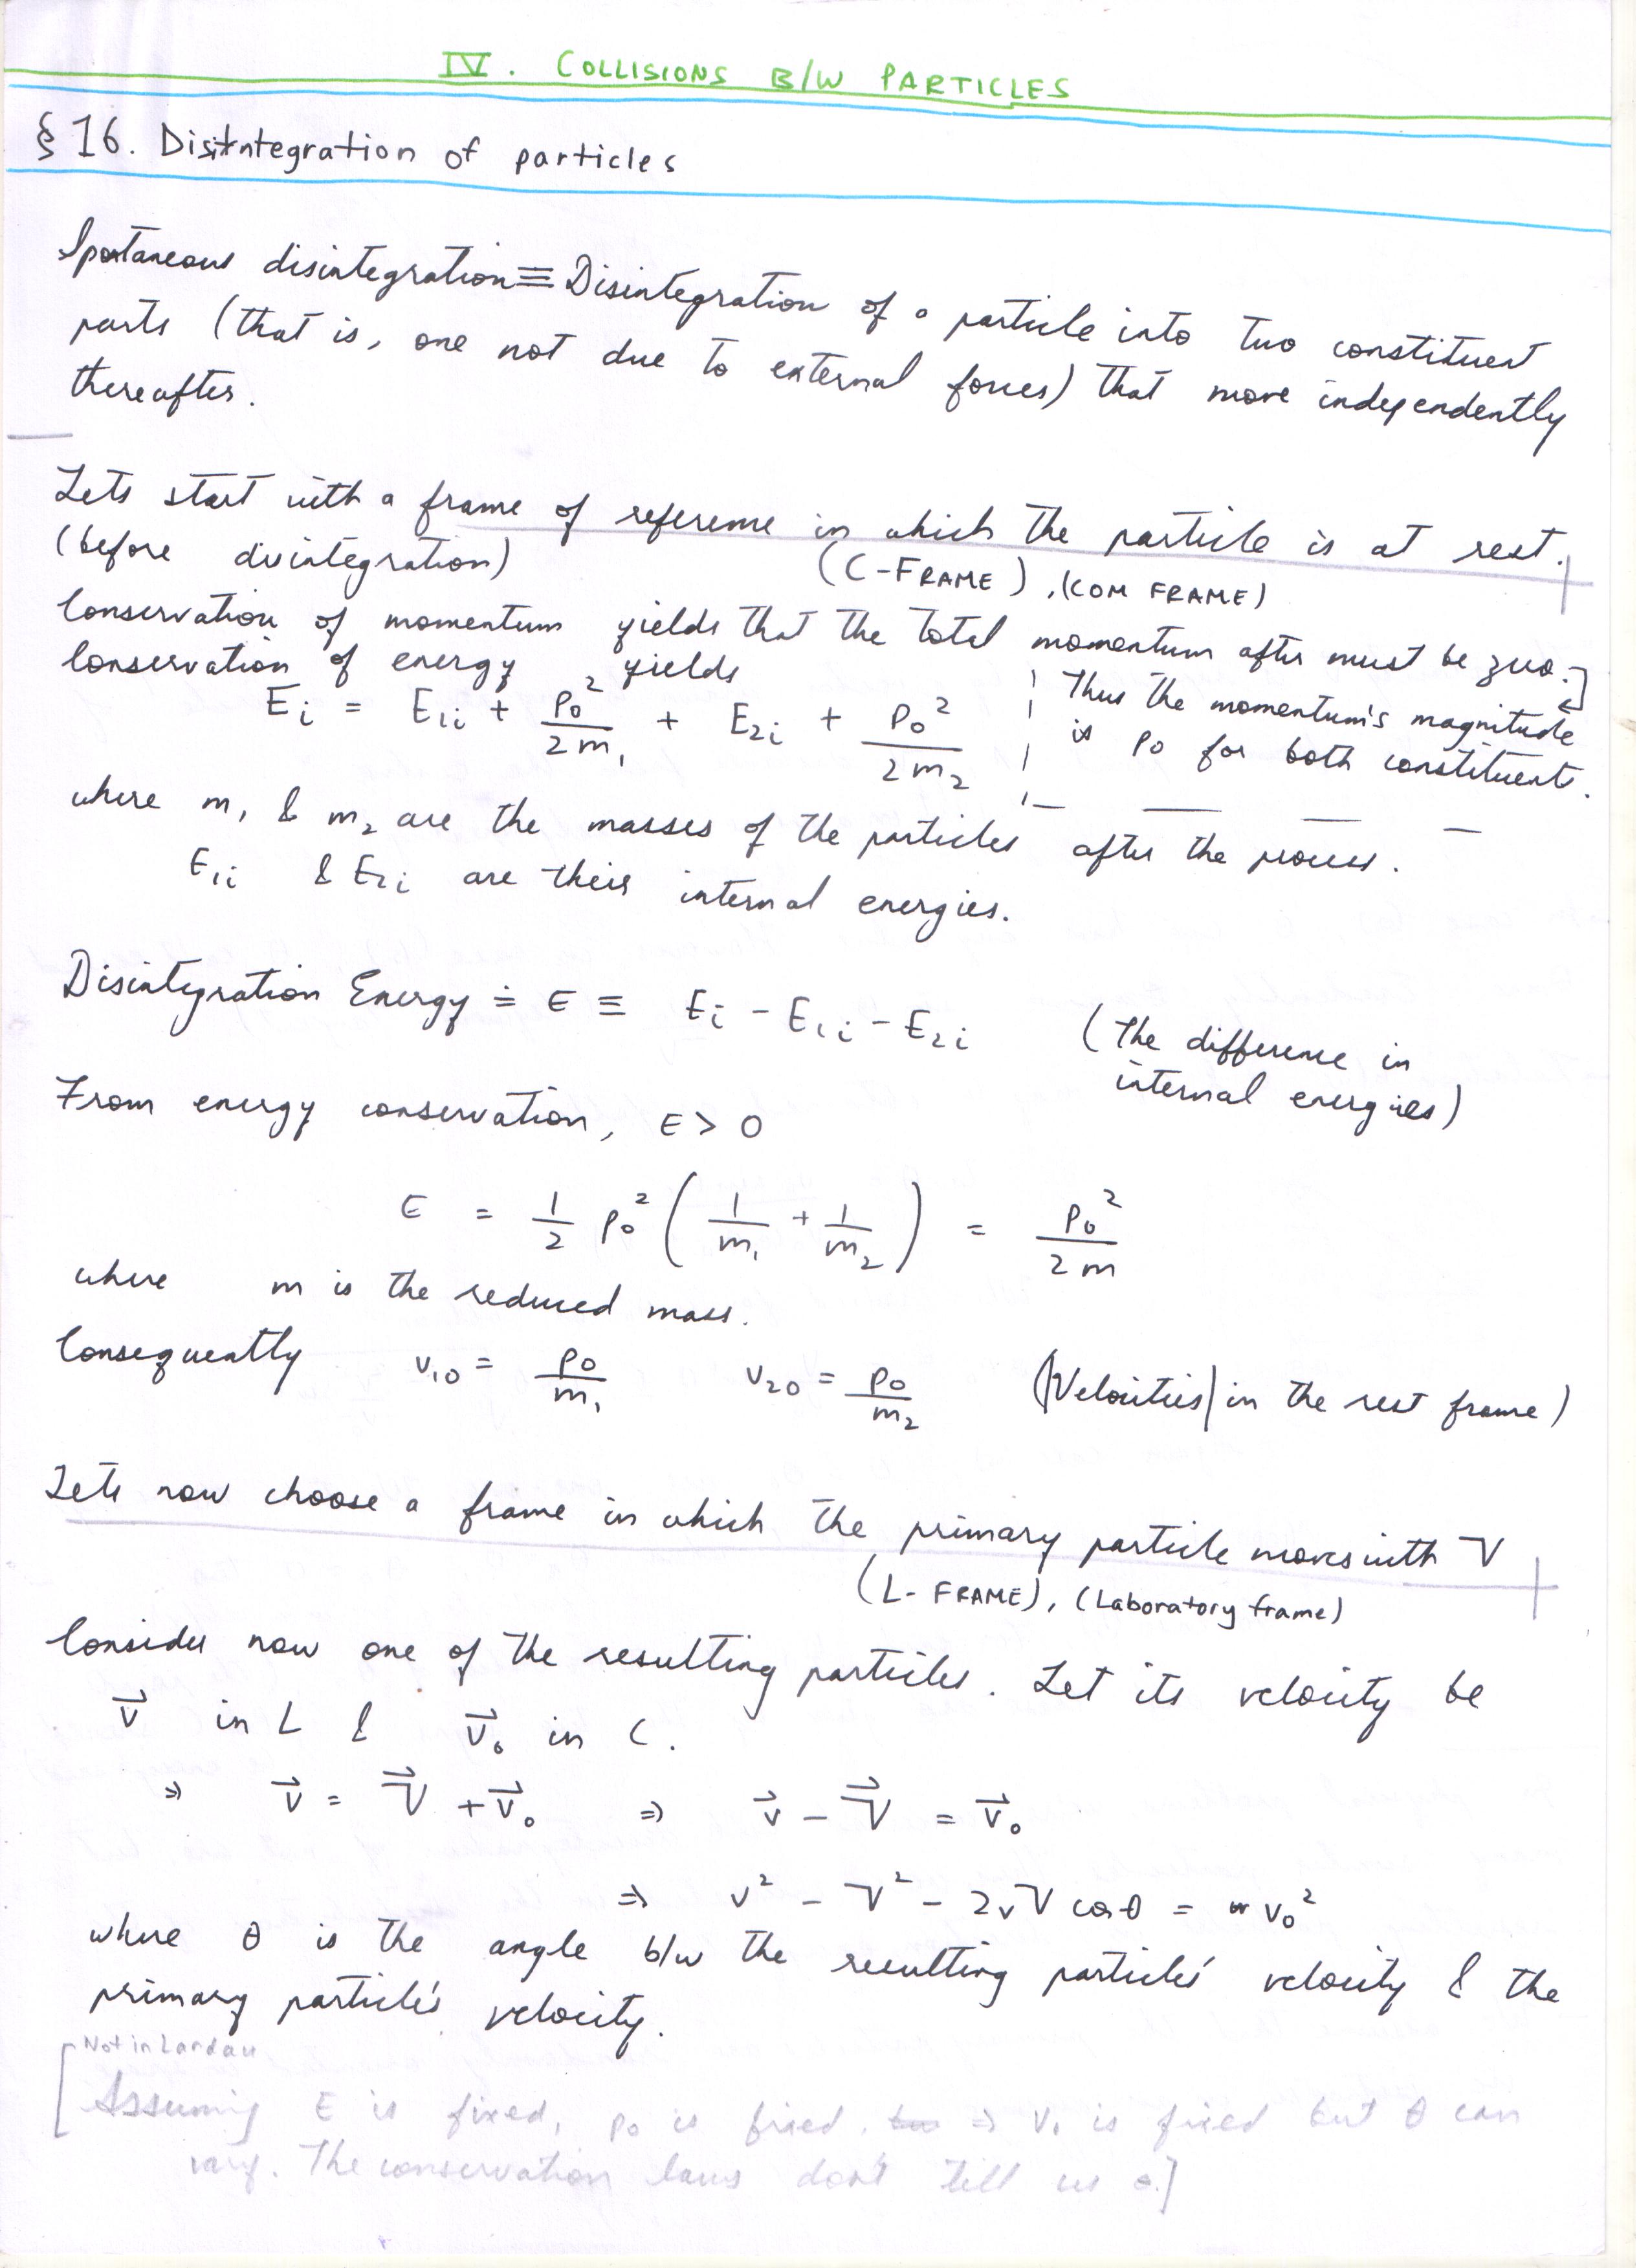 IV. COLLISIONS B/W PARTICLES
§ 16. Disintegration of particles
Spontaneous disintegration ≡ Disintegration of a particle into two constituent
parts (that is, one not due to external forces) that move independently
thereafter.
Lets start with a frame of reference in which the particle is at rest.
(before disintegration) (C-FRAME), (COM FRAME)
Conservation of momentum yields that the total momentum after must be zero.
Conservation of energy yields
Thus the momentum's magnitude
is p₀ for both constituents.
E_i = E_{1i} + p₀²/2m₁ + E_{2i} + p₀²/2m₂
where m₁ & m₂ are the masses of the particles after the process.
E_{1i} & E_{2i} are their internal energies.
Disintegration Energy ≐ ϵ ≡ E_i - E_{1i} - E_{2i} (The difference in
internal energies)
From energy conservation, ϵ > 0
ϵ = 1/2 p₀² (1/m₁ + 1/m₂) = p₀²/2m
where m is the reduced mass.
Consequently v₁₀ = p₀/m₁ v₂₀ = p₀/m₂ (|Velocities| in the rest frame)
Lets now choose a frame in which the primary particle moves with V
(L-FRAME), (Laboratory frame)
Consider now one of the resulting particles. Let its velocity be
v⃗ in L & v⃗₀ in C.
⇒ v⃗ = V⃗ + v⃗₀ ⇒ v⃗ - V⃗ = v⃗₀
⇒ v² - V² - 2vV cosθ = v₀²
where θ is the angle b/w the resulting particles' velocity & the
primary particle's velocity.
[Not in Landau
Assuming E is fixed, p₀ is fixed. ⇒ v₀ is fixed but θ can
vary. The conservation laws don't tell us θ.]